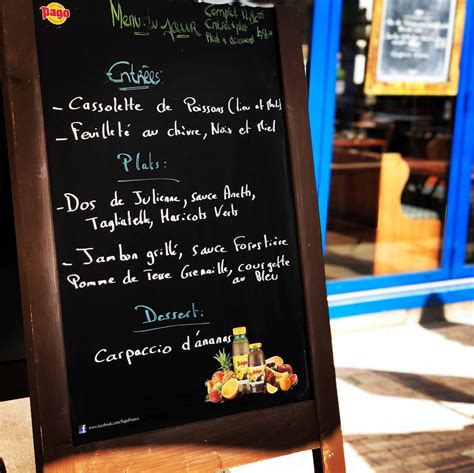 Pago
Menu du jour
Complet
Entrées:
- Cassolette de Poissons (lieu et Mul)
- Feuilleté au chèvre, Nois et Miel
Plats:
- Dos de Julienne, sauce Aneth,
Tagliatelle, Haricots Verts
- Jambon grillé, sauce Forestière
Pomme de Terre Grenaille, courgette
au Bleu
Dessert:
Carpaccio d'ananas
www.facebook.com/PagoFrance